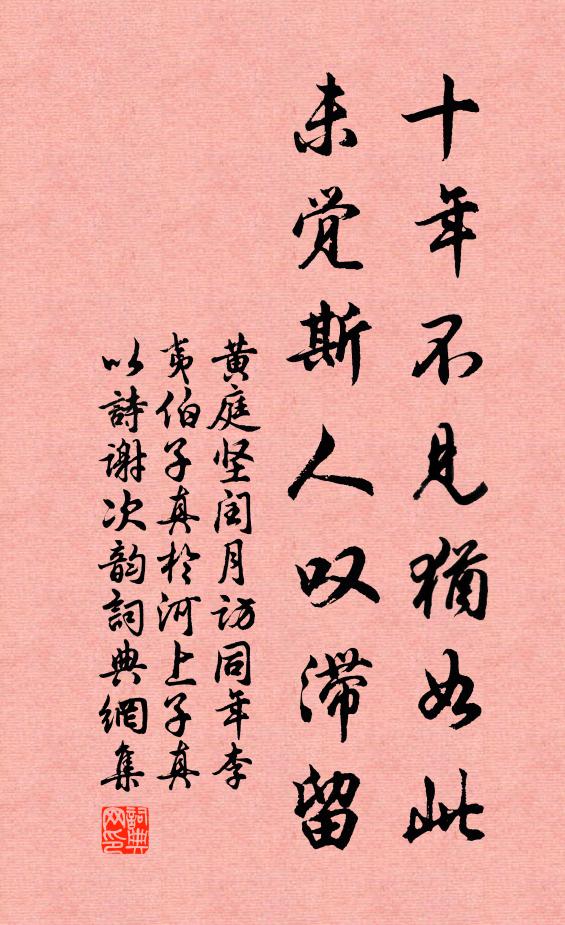 十年不見猶如此
未觉斯人叹滞留
黄庭坚闰月访同年李
夷伯子真於河上子真
以詩谢次韵詞典網集
詞典网印